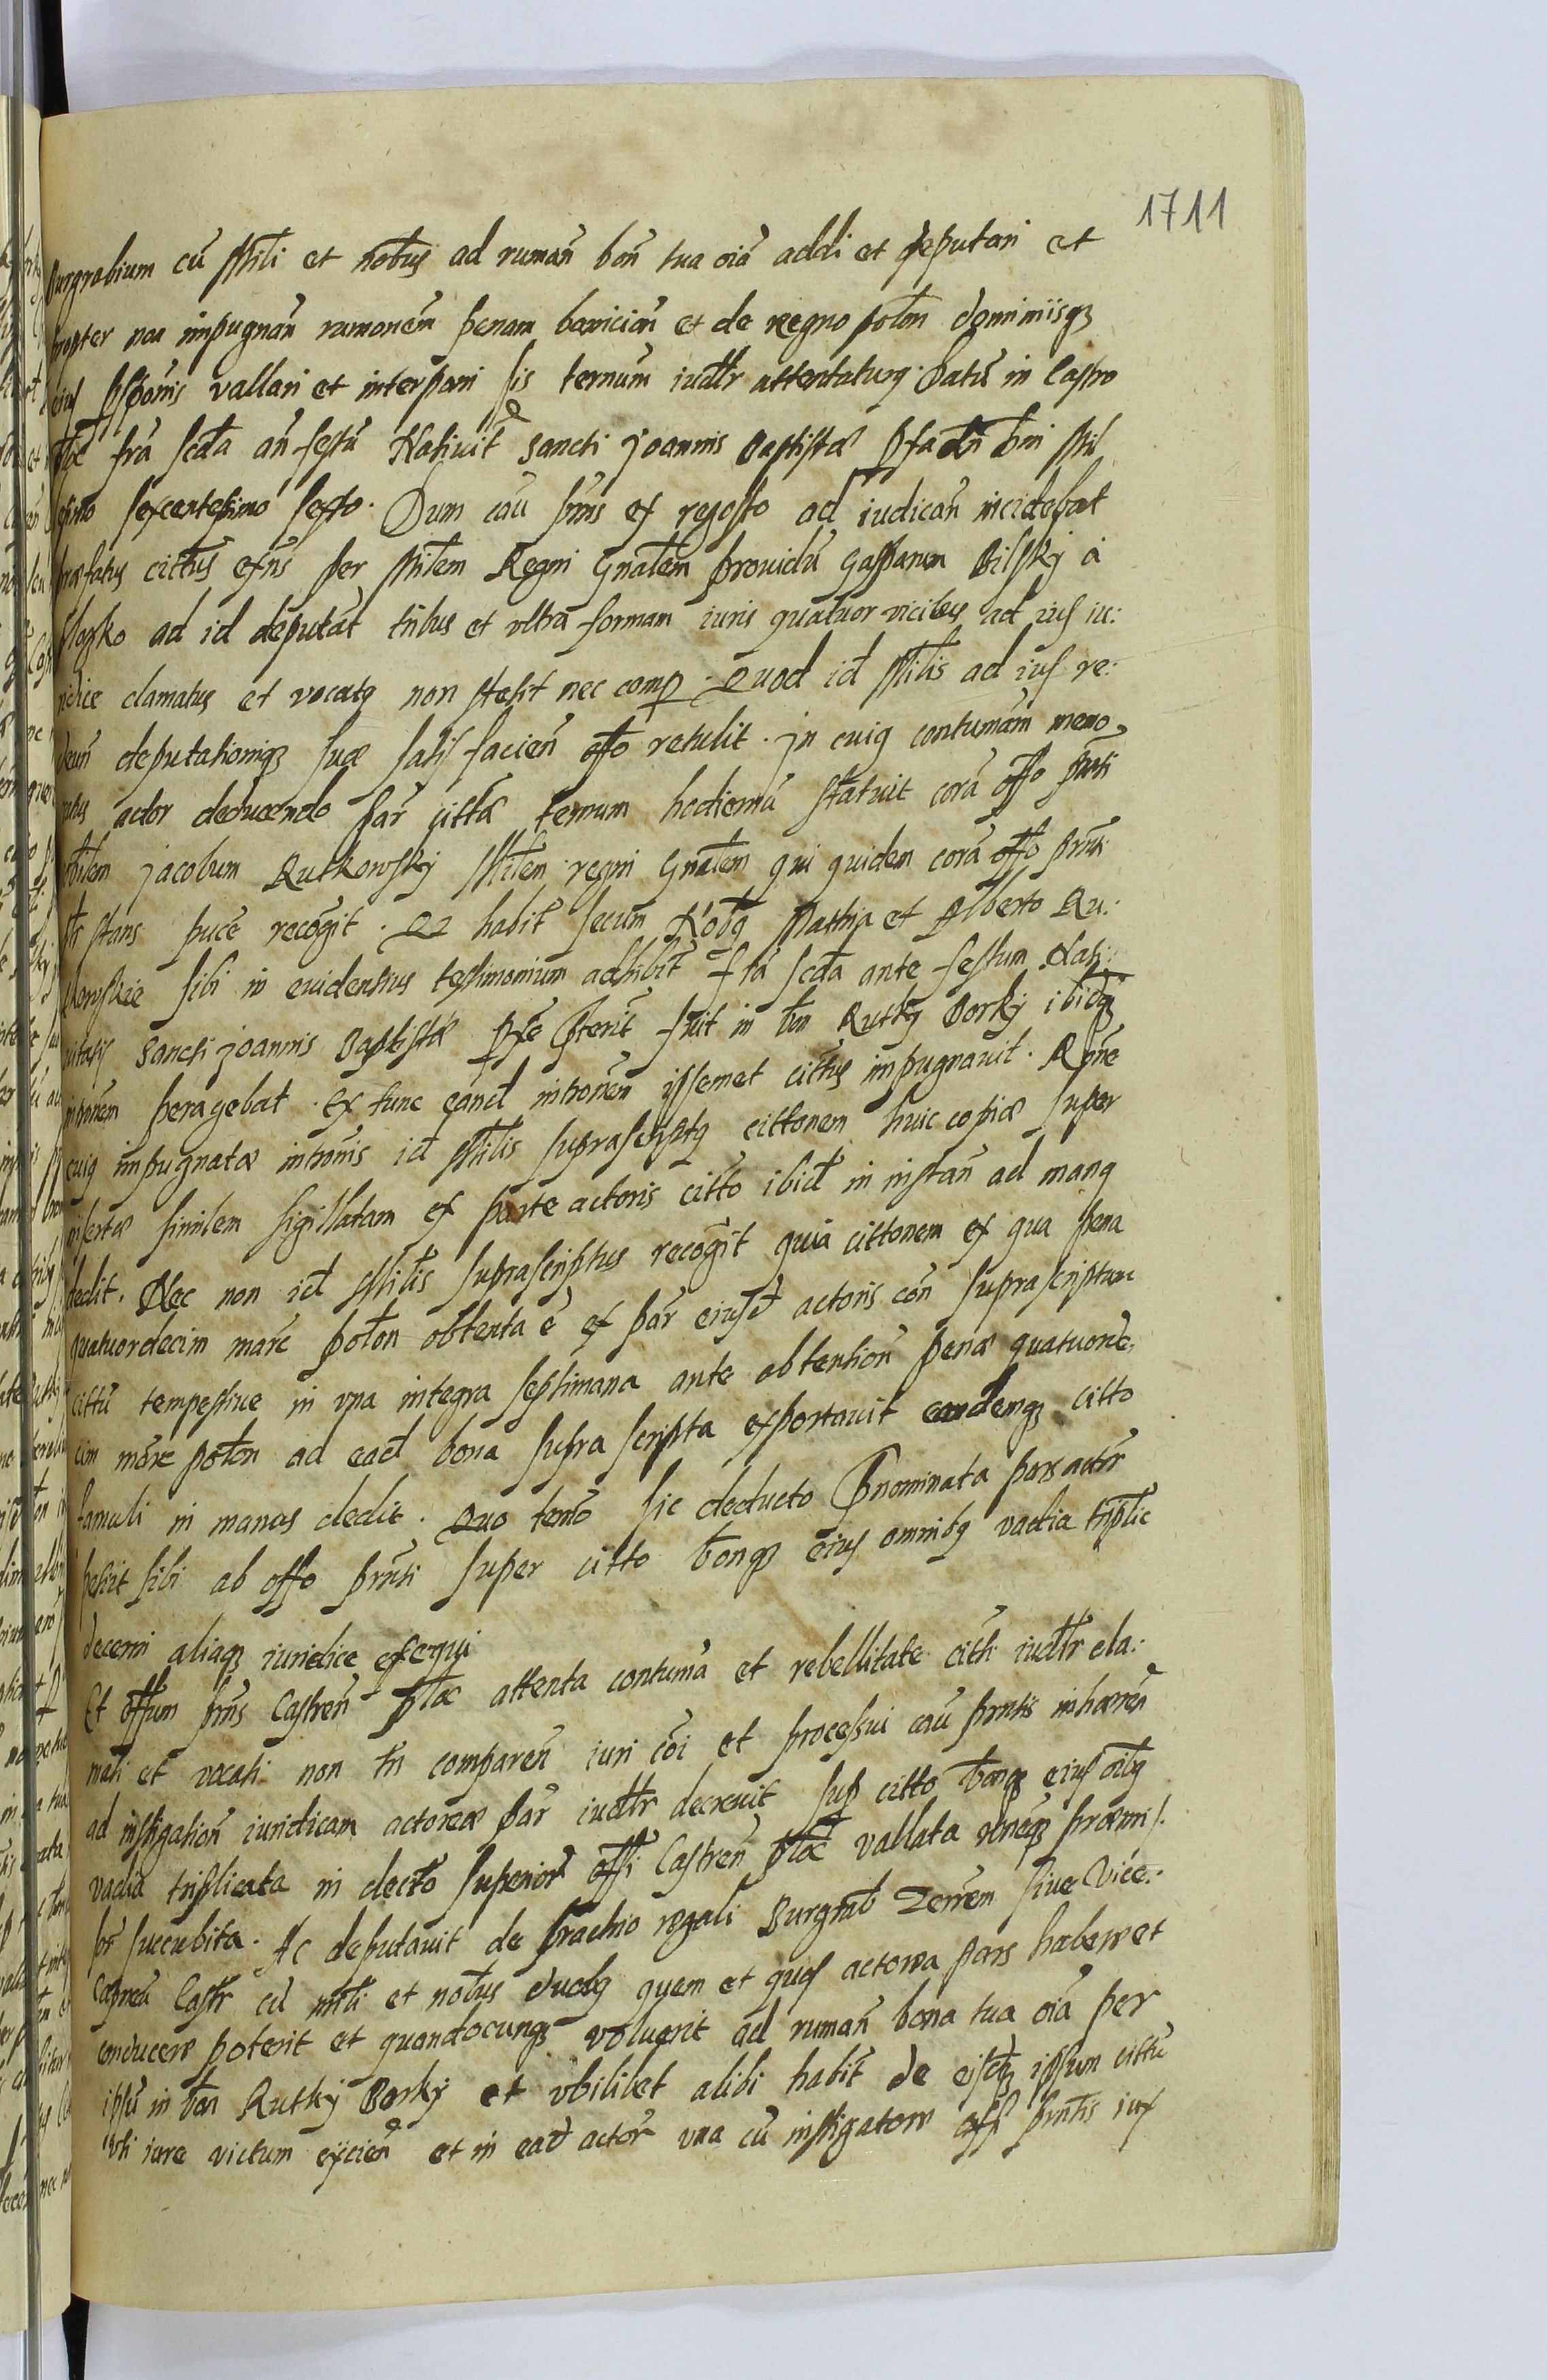 1711
Burgrabium cũ Mĩli et nobus ad rumañ boñ tua oĩa addi et deputari et
propter non impugnañ rumonẽm penam banicioñ et de regno poloñ dominiisqȝ
eius vallari et interponi sis ternum iudłr attentaturg. Datũ in Castro
fra scđa añ festũ Nativit̃ Sancti Joannis Baptistæ
sexcentesimo sexto. Dum cau pñs ex regesto ad iudicañ incidebat
præfatus cittus exñs per Mĩłem Regni Gnałem prouidũ Gasparum Bilsky a
ad id deputat̃ tribus et vltra formam iuris quatuor vicibus ad ius iu:
ridice clamatus et vocatg non stetit nec comp. Quod id Mĩlis ad ius re:
deputationiqȝ suæ satis facieñ offo retulit. In cuig contumãm memo
ratus actor deducendo par citta ternum hodiernũ statuit corã offo pñti
Jacobum Rutkowsky Mĩłem regni Gnałem qui quidem corã offo pñti
stans puce recogit. Qz habit̃ secum Nobg Mathia et Alberto Ru:
kowskie sibi in euidentius testimonium adhibit̃ fra scđa ante festum Nati:
uitatis Sancti Joannis Baptistæ pxe pterit̃ fuit in bon Rutky Borky ibiqȝ
intronẽm peragebat. Ex tunc eand intronẽm ipsemet cittus impugnauit. Rõne
cuig impugnatæ intronis id Mĩlis suprascriptg cittonem huic copiæ super
insertæ similem sigillatam ex parte actoris citto ibid in instañ ad mang
dedit. Nec non id Mĩlis suprascriptus recogit quia cittonem ex qua pena
quatuordecim marc poloñ obtenta ẽ ex par eiusd actoris coñ suprascriptum
cittũ tempestiue in vna integra septimana ante obtentioñ penæ quatuorde,
cim marc poloñ ad ead bona supra scripta exportauit eandemqȝ citto
famuli in manus dedit. Quo termo sic deducto pnominata pars actr
petiit sibi ab offo pñti super citto bonqȝ eius omnibg vadia triplic
decerni aliaqȝ iuridice exequi
Et offum pñs Castreñ Płoc attenta contuma et rebellitate citti iudłr cla:
mati et vocati non tñ compareñ iuri coi et processui cau pñtis inhæreñ
ad instigatioñ iuridicam actoreæ par iudłr decreuit sup citto bonqȝ eius oĩbg
vadia triplicata in decto superiori offi Castreñ Płoc vallata præmis.
succubita. Ac deputauit de brachio regali Burgrab Terrem siue Vice:
Castr cũ mĩli et nobus duobg quem et quos actorea pars habere et
conducere poterit et quandocunqȝ voluerit ad rumañ bona tua oĩa per
ipsũ in bon Rutky Borky et vbilibet alibi habit̃ de eisdqȝ ipsum cittũ
vti iure victum eijcieñ et in ead actor vna cũ instigatore offi pñtis iux